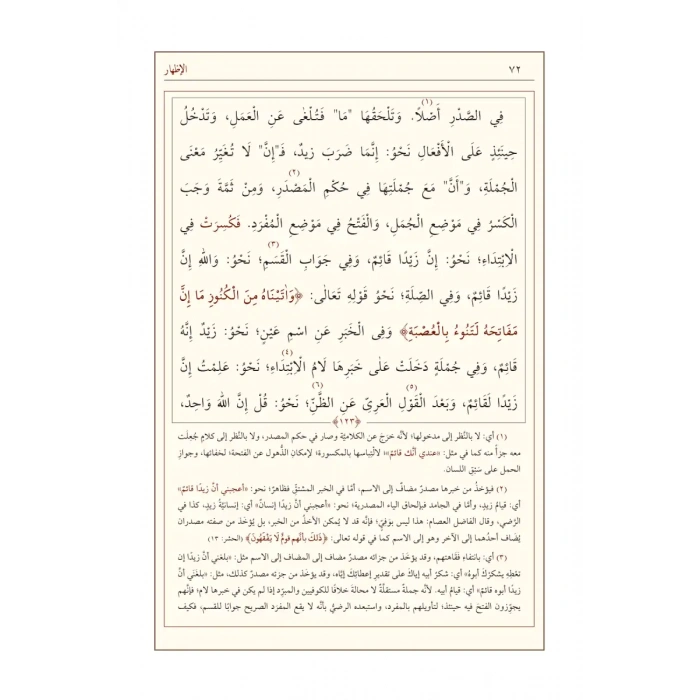 ٧٢ الإظهار
فِي الصَّدْرِ أَصْلًا.(١) وَتَلْحَقُهَا "مَا" فَتُلْغٰى عَنِ الْعَمَلِ، وَتَدْخُلُ
حِينَئِذٍ عَلَى الْأَفْعَالِ نَحْوُ: إِنَّمَا ضَرَبَ زيدٌ، فَـ"إِنَّ" لَا تُغَيِّرُ مَعْنَى
الْجُمْلَةِ، وَ"أَنَّ" مَعَ جُمْلَتِهَا فِي حُكْمِ الْمَصْدَرِ،(٢) وَمِنْ ثَمَّةَ وَجَبَ
الْكَسْرُ فِي مَوْضِعِ الْجُمَلِ، وَالْفَتْحُ فِي مَوْضِعِ الْمُفْرَدِ. فَكُسِرَتْ فِي
الْاِبْتِدَاءِ؛ نَحْوُ: إِنَّ زَيْدًا قَائِمٌ، وَفِي جَوَابِ الْقَسَمِ؛(٣) نَحْوُ: وَاللهِ إِنَّ
زَيْدًا قَائِمٌ، وَفِي الصِّلَةِ؛ نَحْوُ قَوْلِهِ تَعَالٰى: ﴿وَاٰتَيْنَاهُ مِنَ الْكُنُوزِ مَا إِنَّ
مَفَاتِحَهُ لَتَنُوءُ بِالْعُصْبَةِ﴾ وَفِى الْخَبَرِ عَنِ اسْمِ عَيْنٍ؛ نَحْوُ: زَيْدٌ إِنَّهُ
قَائِمٌ، وَفِي جُمْلَةٍ دَخَلَتْ عَلٰى خَبَرِهَا لَامُ الْاِبْتِدَاءِ؛(٤) نَحْوُ: عَلِمْتُ إِنَّ
زَيْدًا لَقَائِمٌ، وَبَعْدَ الْقَوْلِ(٥) الْعَرِيِّ عَنِ الظَّنِّ؛(٦) نَحْوُ: قُلْ إِنَّ اللهَ وَاحِدٌ،
﴿١٢٣﴾
(١) أي: لا بالنَّظر إلى مدخولها؛ لأنَّه خرَج عن الكلاميَّة وصار في حكم المصدر، ولا بالنَّظر إلى كلامٍ جُعِلَت
معه جزأً منه كما في مثل: «عندي أنَّك قائمٌ»؛ لالْتِباسها بالمكسورة؛ لإمكانِ الذُّهول عن الفتحة؛ لخفائها، وجوازِ
الحمل على سَبْقِ اللسان.
(٢) فيؤخَذ من خبرها مصدرٌ مضافٌ إلى الاسم، أمَّا في الخبر المشتقِّ فظاهرٌ؛ نحو: «أعجبني أنَّ زيدًا قائمٌ»
أي: قيامُ زيدٍ، وأمَّا في الجامد فبإلحاق الياء المصدرية؛ نحو: «أعجبني أنَّ زيدًا إنسانٌ» أي: إنسانيَّةُ زيدٍ، كذا في
الرَّضي، وقال الفاضل العصام: هذا ليس بوَفِيٍّ؛ فإنَّه قد لا يُمكن الأخذُ من الخبر، بل يُؤخَذ من صفته مصدران
يُضاف أحدُهما إلى الآخر وهو إلى الاسم كما في قوله تعالى: ﴿ذٰلِكَ بأنَّهم قومٌ لَا يَفْقَهُونَ﴾ (الحشر: ١٣)
(٣) أي: بانتفاءِ فَقَاهتهم، وقد يؤخَذ من جزائه مصدرٌ مضاف إلى المضاف إلى الاسم مثل: «بلغني أنَّ زيدًا إن
تعْطِهِ يشكرْكَ أبوهُ» أي: شكرُ أبيه إياكَ على تقديرِ إعطائكَ إيَّاه، وقد يؤخَذ من جزئه مصدرٌ كذلك، مثل: «بلغني أنَّ
زيدًا أبوه قائمٌ» أي: قيامُ أبيه. لأنَّه جملةٌ مستقلَّةٌ لا محالةَ خلافًا للكوفيين والمبرِّد إذا لم يكن في خبرها لام؛ فإنَّهم
يجوِّزون الفتحَ فيه حينئذ؛ لتأويلهم بالمفرد، واستبعده الرضيُّ بأنَّه لا يقع المفرَد الصريح جوابًا للقسم، فكيف